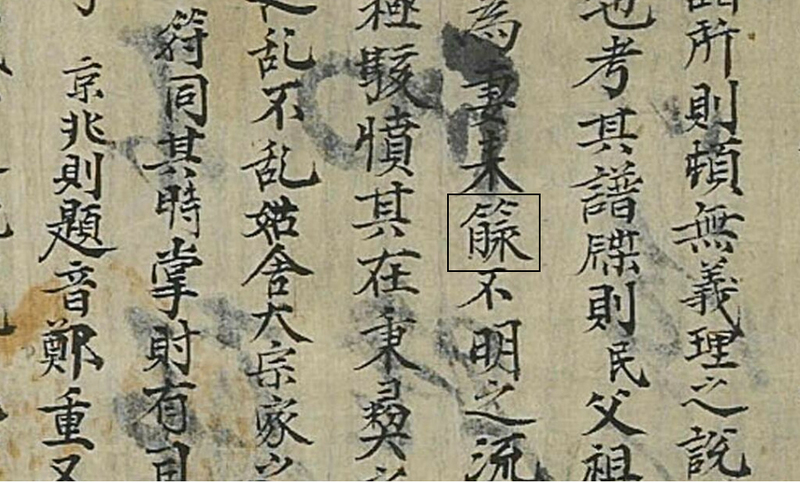 所則頓無義理之說
也考其譜牒則民父祖
為妻未不明之流
極駭憤其在秉彛
之乱不乱姑舍大宗家
符同其時掌財有司
京兆則題音鄭重又